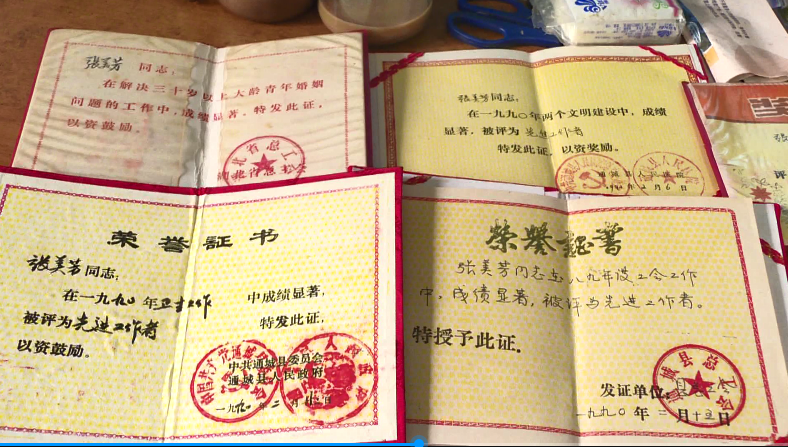 张美芳 同志：
在解决三十岁以上大龄青年婚姻
问题的工作中，成绩显著。特发此证，
以资鼓励。
湖北省总工会
张美芳同志：
在一九九〇年两个文明建设中，成绩
显著，被评为先进工作者
特发此证，以资奖励。
通城县人民
月6日
荣誉证书
张美芳同志：
在一九九〇年卫生工作 中成绩显著，
被评为先进工作者 特发此证，
以资鼓励。
中共通城县委员会
通城县人民政府
一九九〇年二月
荣誉证书
张美芳同志在八九年度工会工作
中，成绩显著，被评为先进工作者。
特授予此证．
发证单位：
城县总工会
一九九〇年二月十五日
评